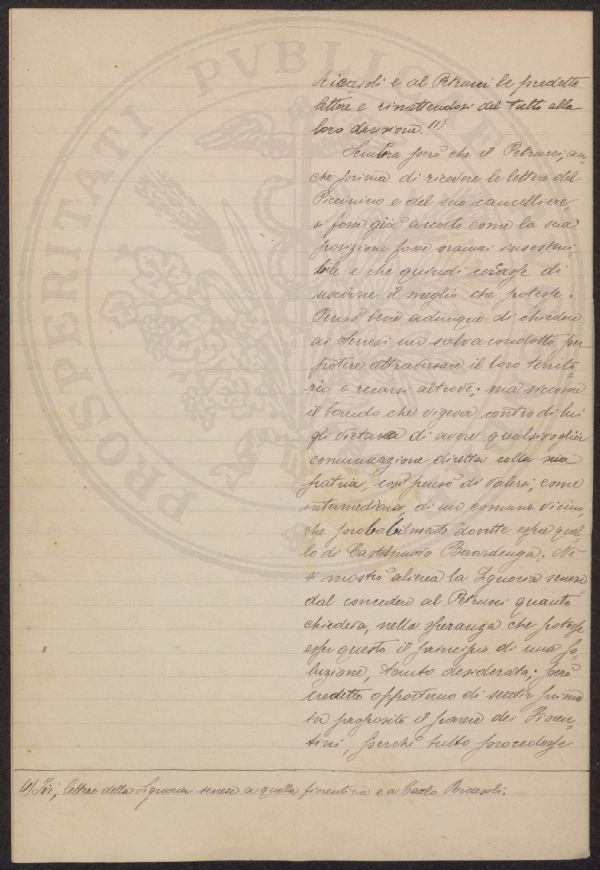 PROSPERITATI PVBLICAE
Ricasoli e al Petrucci le predette
lettere e rimettendosi del tutto alla
loro decisione. (1)
Sembra però che il Petrucci, an-
che prima di ricevere le lettere del
Piccinino e del suo cancelliere,
si fosse già accorto come la sua
posizione fosse oramai insosteni-
bile e che quindi cercasse di
uscirne il meglio che potesse.
Pensò bene adunque di chiedere
ai Senesi un salvacondotto per
potere attraversare il loro territo-
rio e recarsi altrove; ma siccome
il bando che vigeva contro di lui
gli vietava di avere qualsivoglia
comunicazione diretta colla sua
patria, così pensò di valersi, come
intermediario, di un comune vicino,
che probabilmente dovette esser quel-
lo di Castelnuovo Berardenga. Nè
si mostrò aliena la Signoria senese
dal concedere al Petrucci quanto
chiedeva, nella speranza che potesse
esser questo il principio di una so-
luzione, tanto desiderata; però
credette opportuno di sentir prima
in proposito il parere dei Fioren-
tini, perchè tutto procedesse
(1) Ivi, lettere della Signoria senese a quella fiorentina e a Carlo Ricasoli.